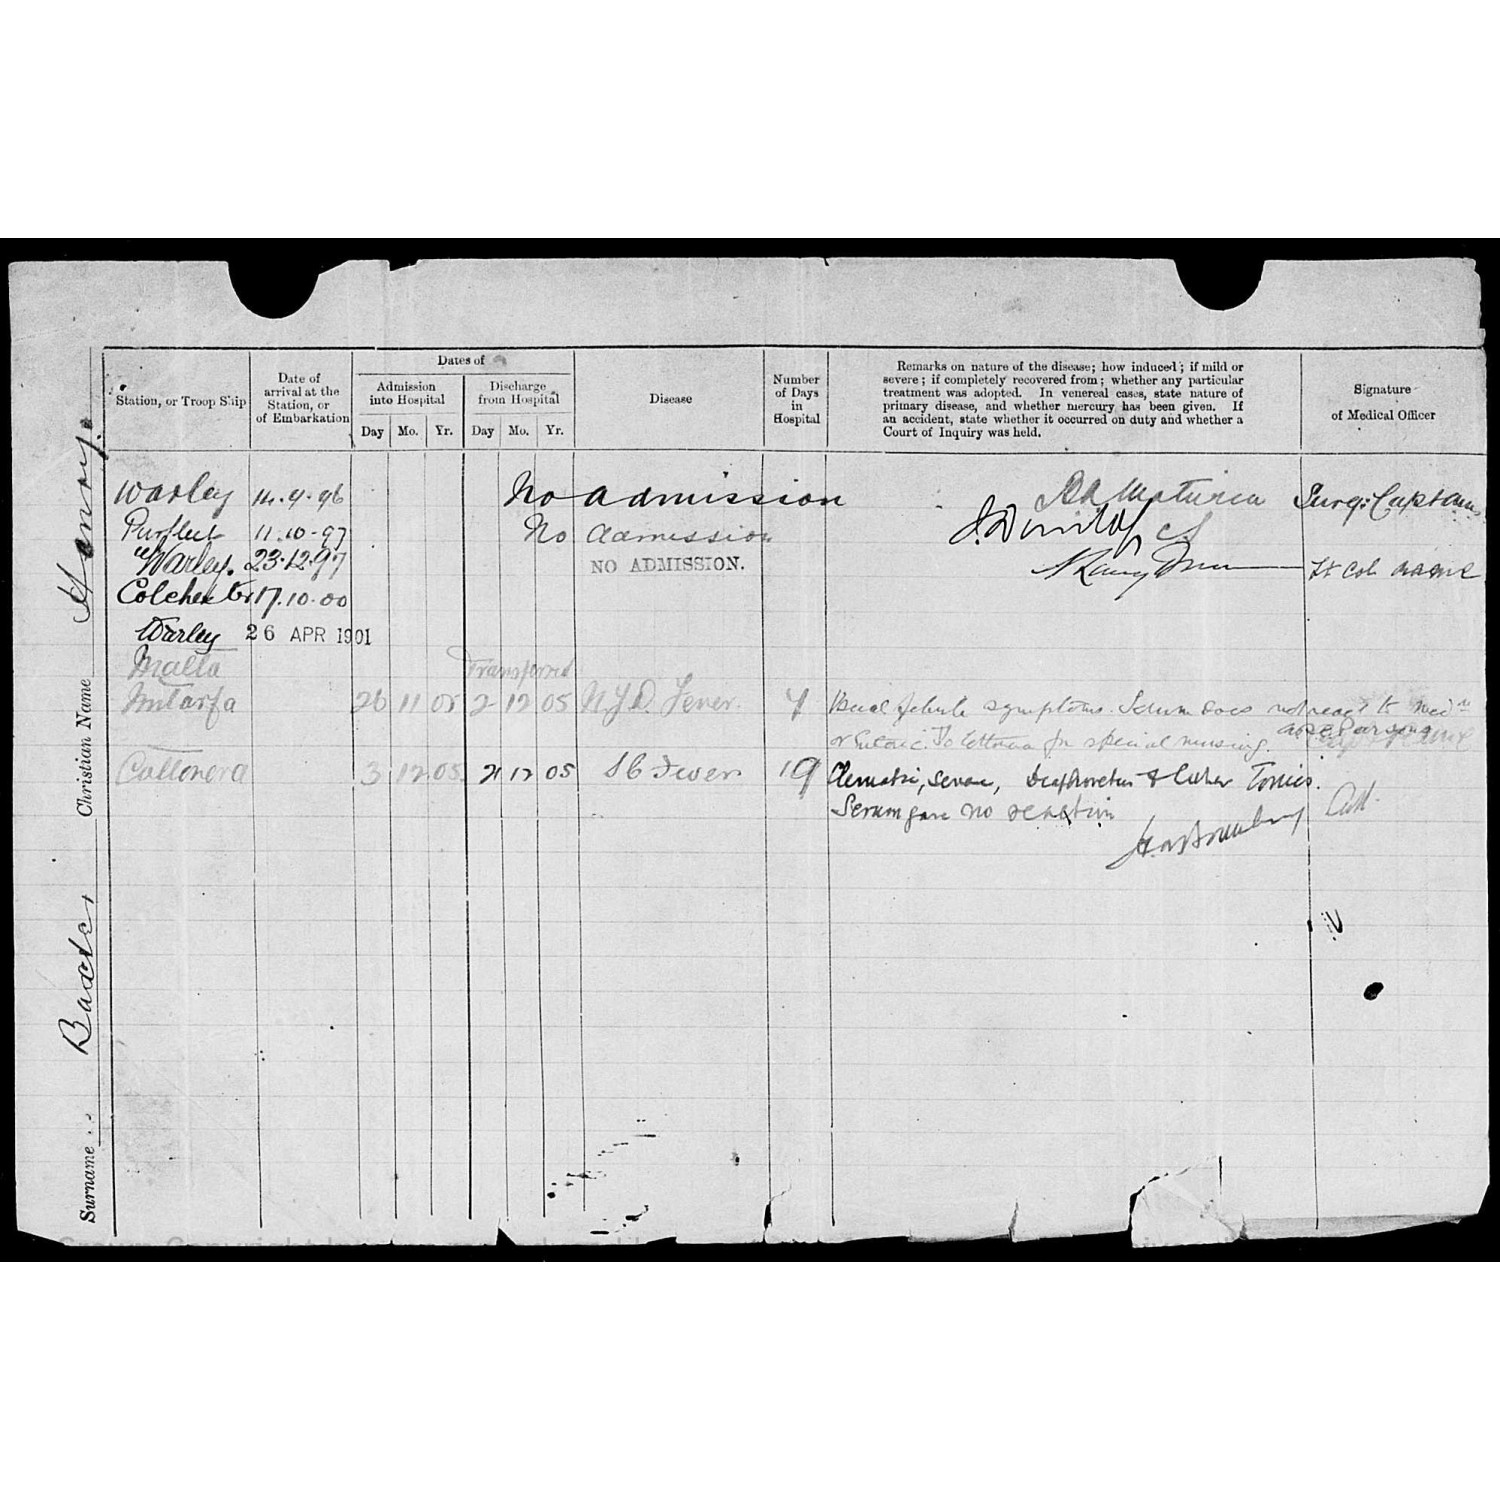 Dates of
Station, or Troop Ship
Date of
arrival at the
Station, or
of Embarkation
Admission
into Hospital
Discharge
from Hospital
Day Mo. Yr. Day Mo. Yr.
Disease
Number
of Days
in
Hospital
Remarks on nature of the disease; how induced; if mild or
severe; if completely recovered from; whether any particular
treatment was adopted. In venereal cases, state nature of
primary disease, and whether mercury has been given. If
an accident, state whether it occurred on duty and whether a
Court of Inquiry was held.
Signature
of Medical Officer
Warley 14.9.96 No admission Surg: Captain
Purfleet 11.10-97 No admission J. Dunlop
Warley. 23.12.97 NO ADMISSION. Lt Col
Colchester 17.10.00
Warley 26 APR 1901
Malta Transferred
Mtarfa 26 11 05 2 12 05 N.Y.D. Fever. 7 Usual febrile symptoms. Serum does not react to Med
or Enteric. To Cottonera for special nursing.
Cottonera 3 12 05 21 12 05 S C Fever 19 severe, Tonics.
Serum gave no reaction
Surname Baxter
Christian Name Henry.